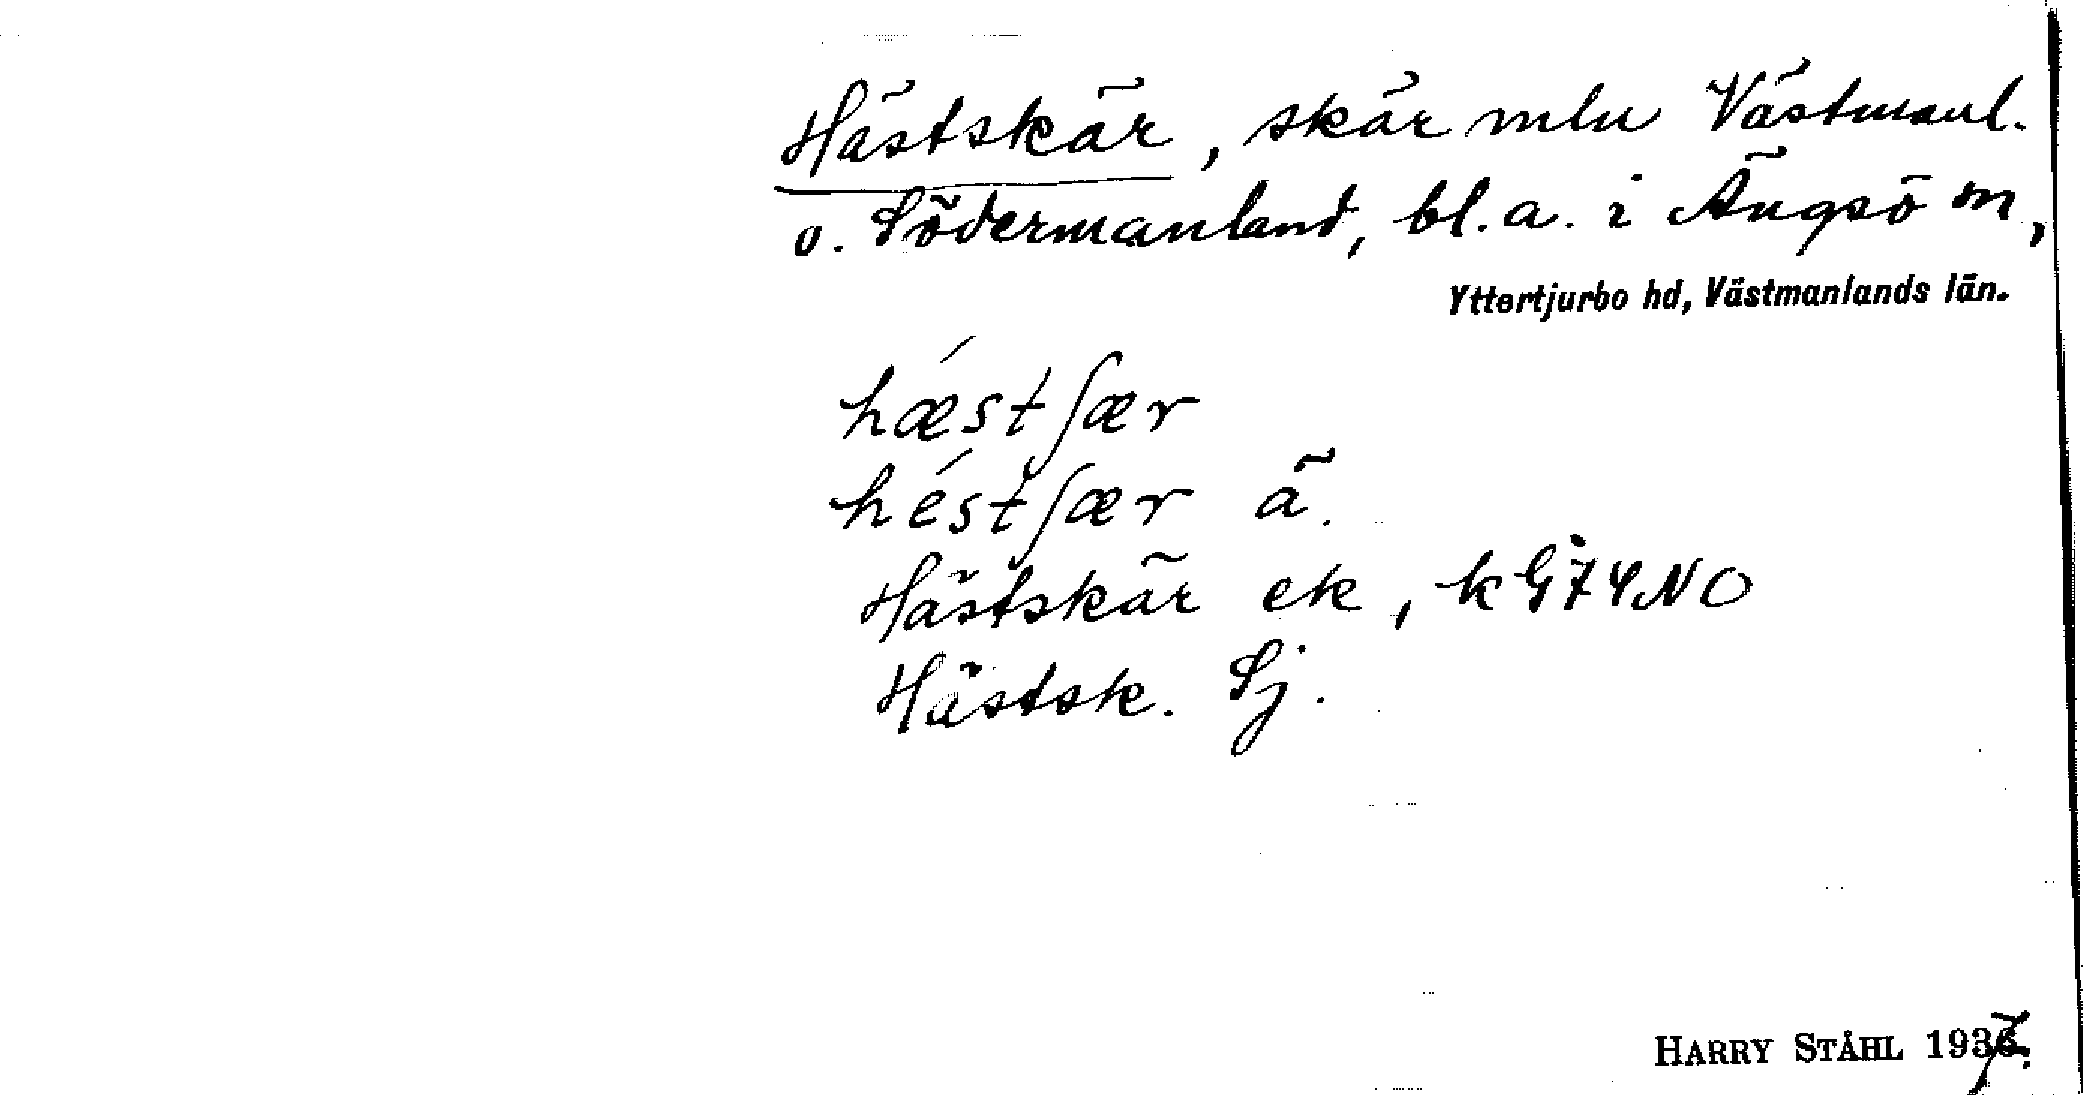 Hästskär, skär mln Västmanl.
o. Södermanland, bl.a. i Ängsö sn,
Yttertjurbo hd, Västmanlands län.
hǽstʃær
héstʃær ä.
Hästskär ek, k G74NO
Hästsk. Sj.
HARRY STÅHL 1937.